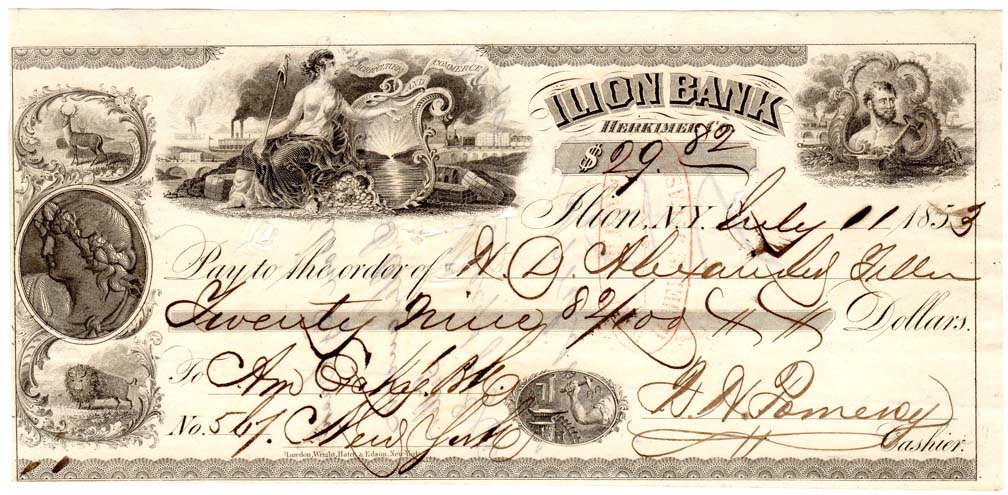 AGRICULTURE AND COMMERCE
ILION BANK
HERKIMER Co.
$ 29.82
Ilion, N.Y. July 11 1853
Pay to the order of H. D. Alexander Teller
Twenty Nine 82/100 Dollars.
To Am. Exch'ge Bk.
No. 567. New York
H. H. Pomeroy
Cashier.
Rawdon, Wright, Hatch & Edson, New-York